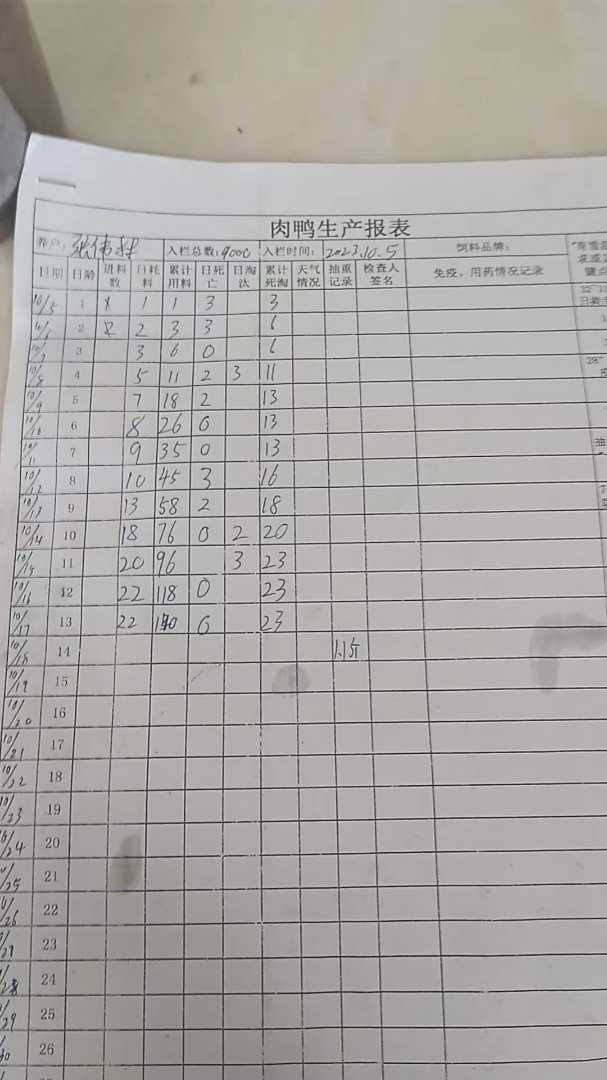 肉鸭生产报表
养户：张伟林 入栏总数：9000 入栏时间：2023.10.5 饲料品牌：
日期 日龄 进料数 日耗料 累计用料 日死亡 日淘汰 累计死淘 天气情况 抽重记录 检查人签名 免疫、用药情况记录
10/5 1 1 1 3 3
10/6 2 2 3 3 6
10/7 3 3 6 0 6
10/8 4 5 11 2 3 11
10/9 5 7 18 2 13
10/10 6 8 26 0 13
10/11 7 9 35 0 13
10/12 8 10 45 3 16
10/13 9 13 58 2 18
10/14 10 18 76 0 2 20
10/15 11 20 96 3 23
10/16 12 22 118 0 23
10/17 13 22 140 0 23
10/18 14
10/19 15
10/20 16
10/21 17
10/22 18
10/23 19
10/24 20
/25 21
/26 22
/27 23
/28 24
/29 25
/30 26